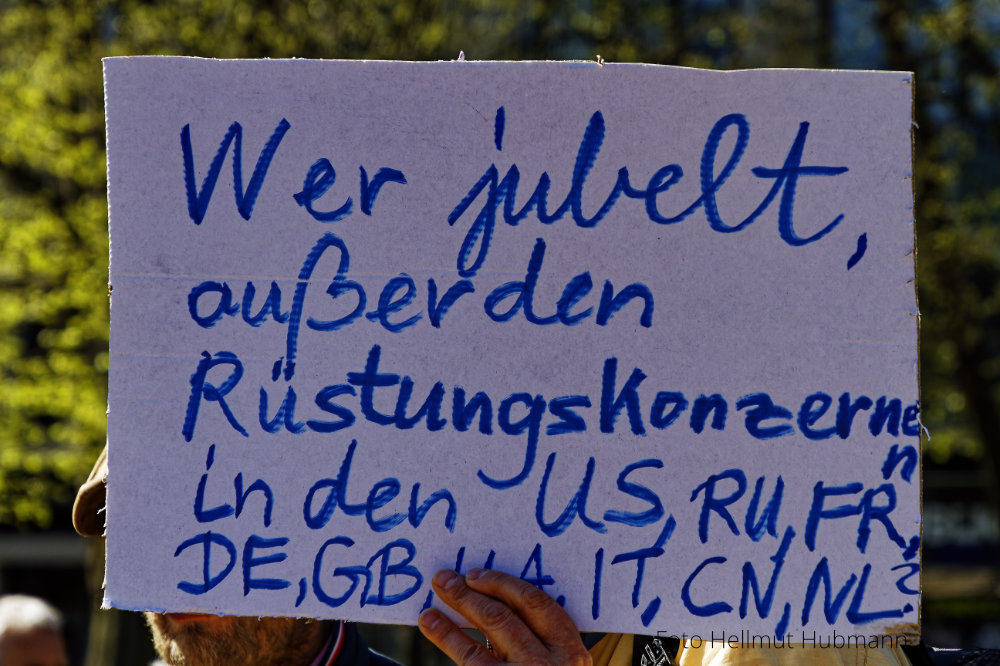 Wer jubelt,
außer den
Rüstungskonzernen
in den US, RU, FR,
DE, GB, UA, IT, CN, NL?
Foto Hellmut Hubmann